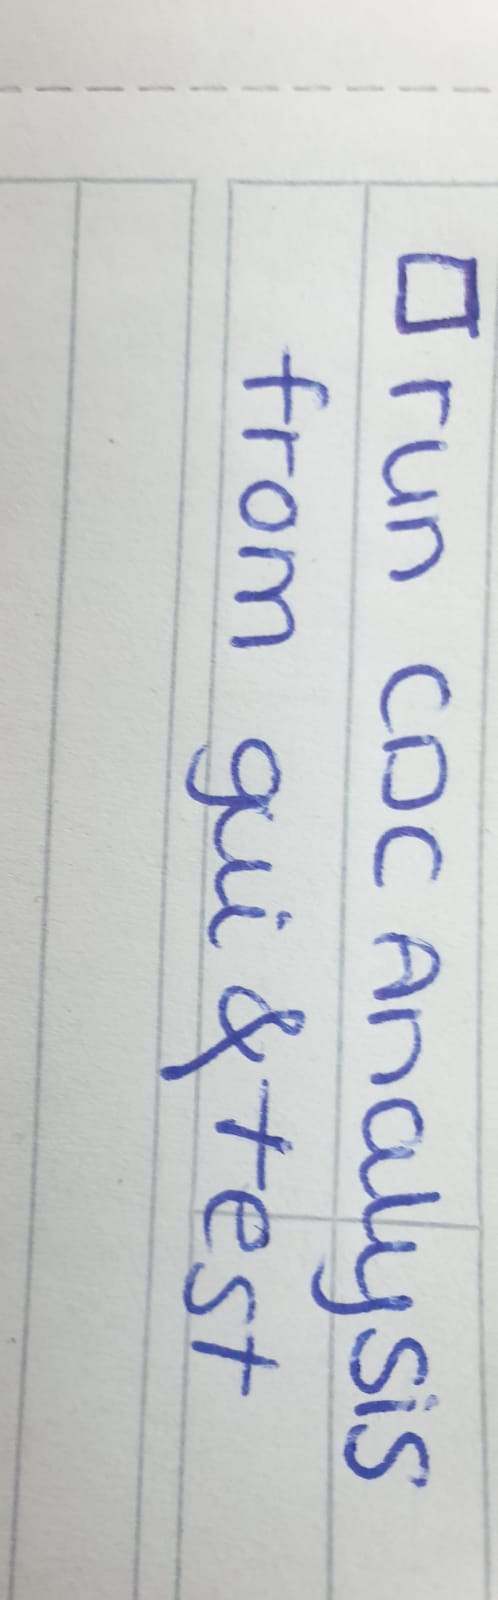 ☐ run CDC Analysis
from gui & test